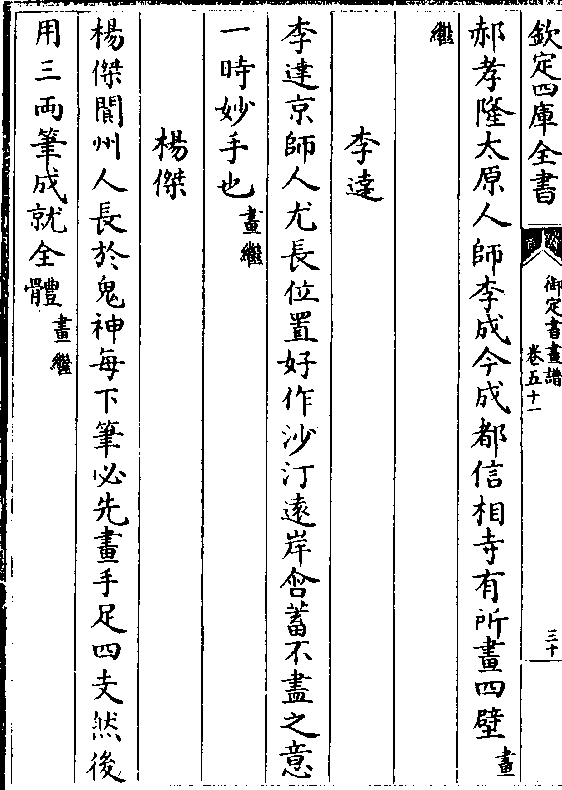 欽定四庫全書
御定書畫譜
卷五十一
三十
郝孝隆太原人師李成今成都信相寺有所畫四壁畫
繼
李達
李達京師人尤長位置好作沙汀遠岸含蓄不盡之意
一時妙手也畫繼
楊傑
楊傑閬州人長於鬼神每下筆必先畫手足四支然後
用三兩筆成就全體畫繼